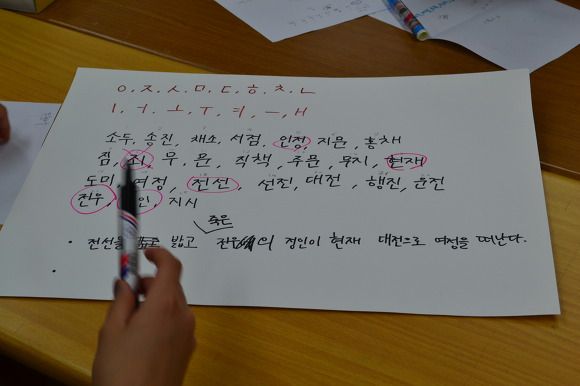 ㅇ, ㅈ, ㅅ, ㅁ, ㄷ, ㅎ, ㅊ, ㄴ
ㅣ, ㅓ, ㅗ, ㅜ, ㅕ, ㅡ, ㅐ
소두, 송진, 채소, 서점, 인정, 지문, 홍채
짐, 죄, 무, 문, 직책, 주문, 무지, 현재
도미, 여정, 전선, 선진, 대전, 행진, 운전
전우, 인, 지시
죽은
• 전선을 밟고 전우의 정인이 현재 대전으로 여정을 떠난다.
•